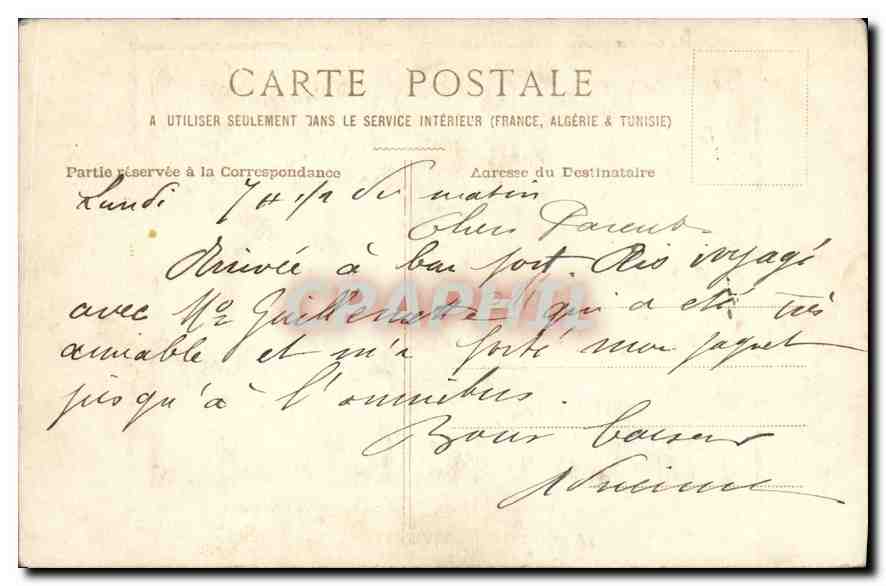 CARTE POSTALE
A UTILISER SEULEMENT DANS LE SERVICE INTÉRIEUR (FRANCE, ALGÉRIE & TUNISIE)
Partie réservée à la Correspondance
Adresse du Destinataire
Lundi 7 H 1/2 du matin
Chers Parents
Arrivée à bon port. Ai voyagé
avec Mr Guillemets qui a été très
aimable et m'a porté mon paquet
jusqu'à l'omnibus.
Bons baisers
CPAPHIL